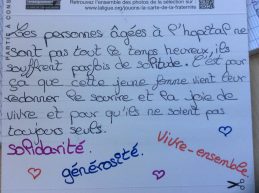 Retrouvez l'ensemble des photos de la sélection sur
www.laligue.org/jouons-la-carte-de-la-fraternite
Les personnes âgées à l'hopital ne
sont pas tout le temps heureux, ils
souffrent parfois de solitude. C'est pour
ça que cette jeune femme vient leur
redonner le sourire et la joie de
vivre et pour qu'ils ne soient pas
toujours seuls.
solidarité.
générosité.
Vivre-ensemble